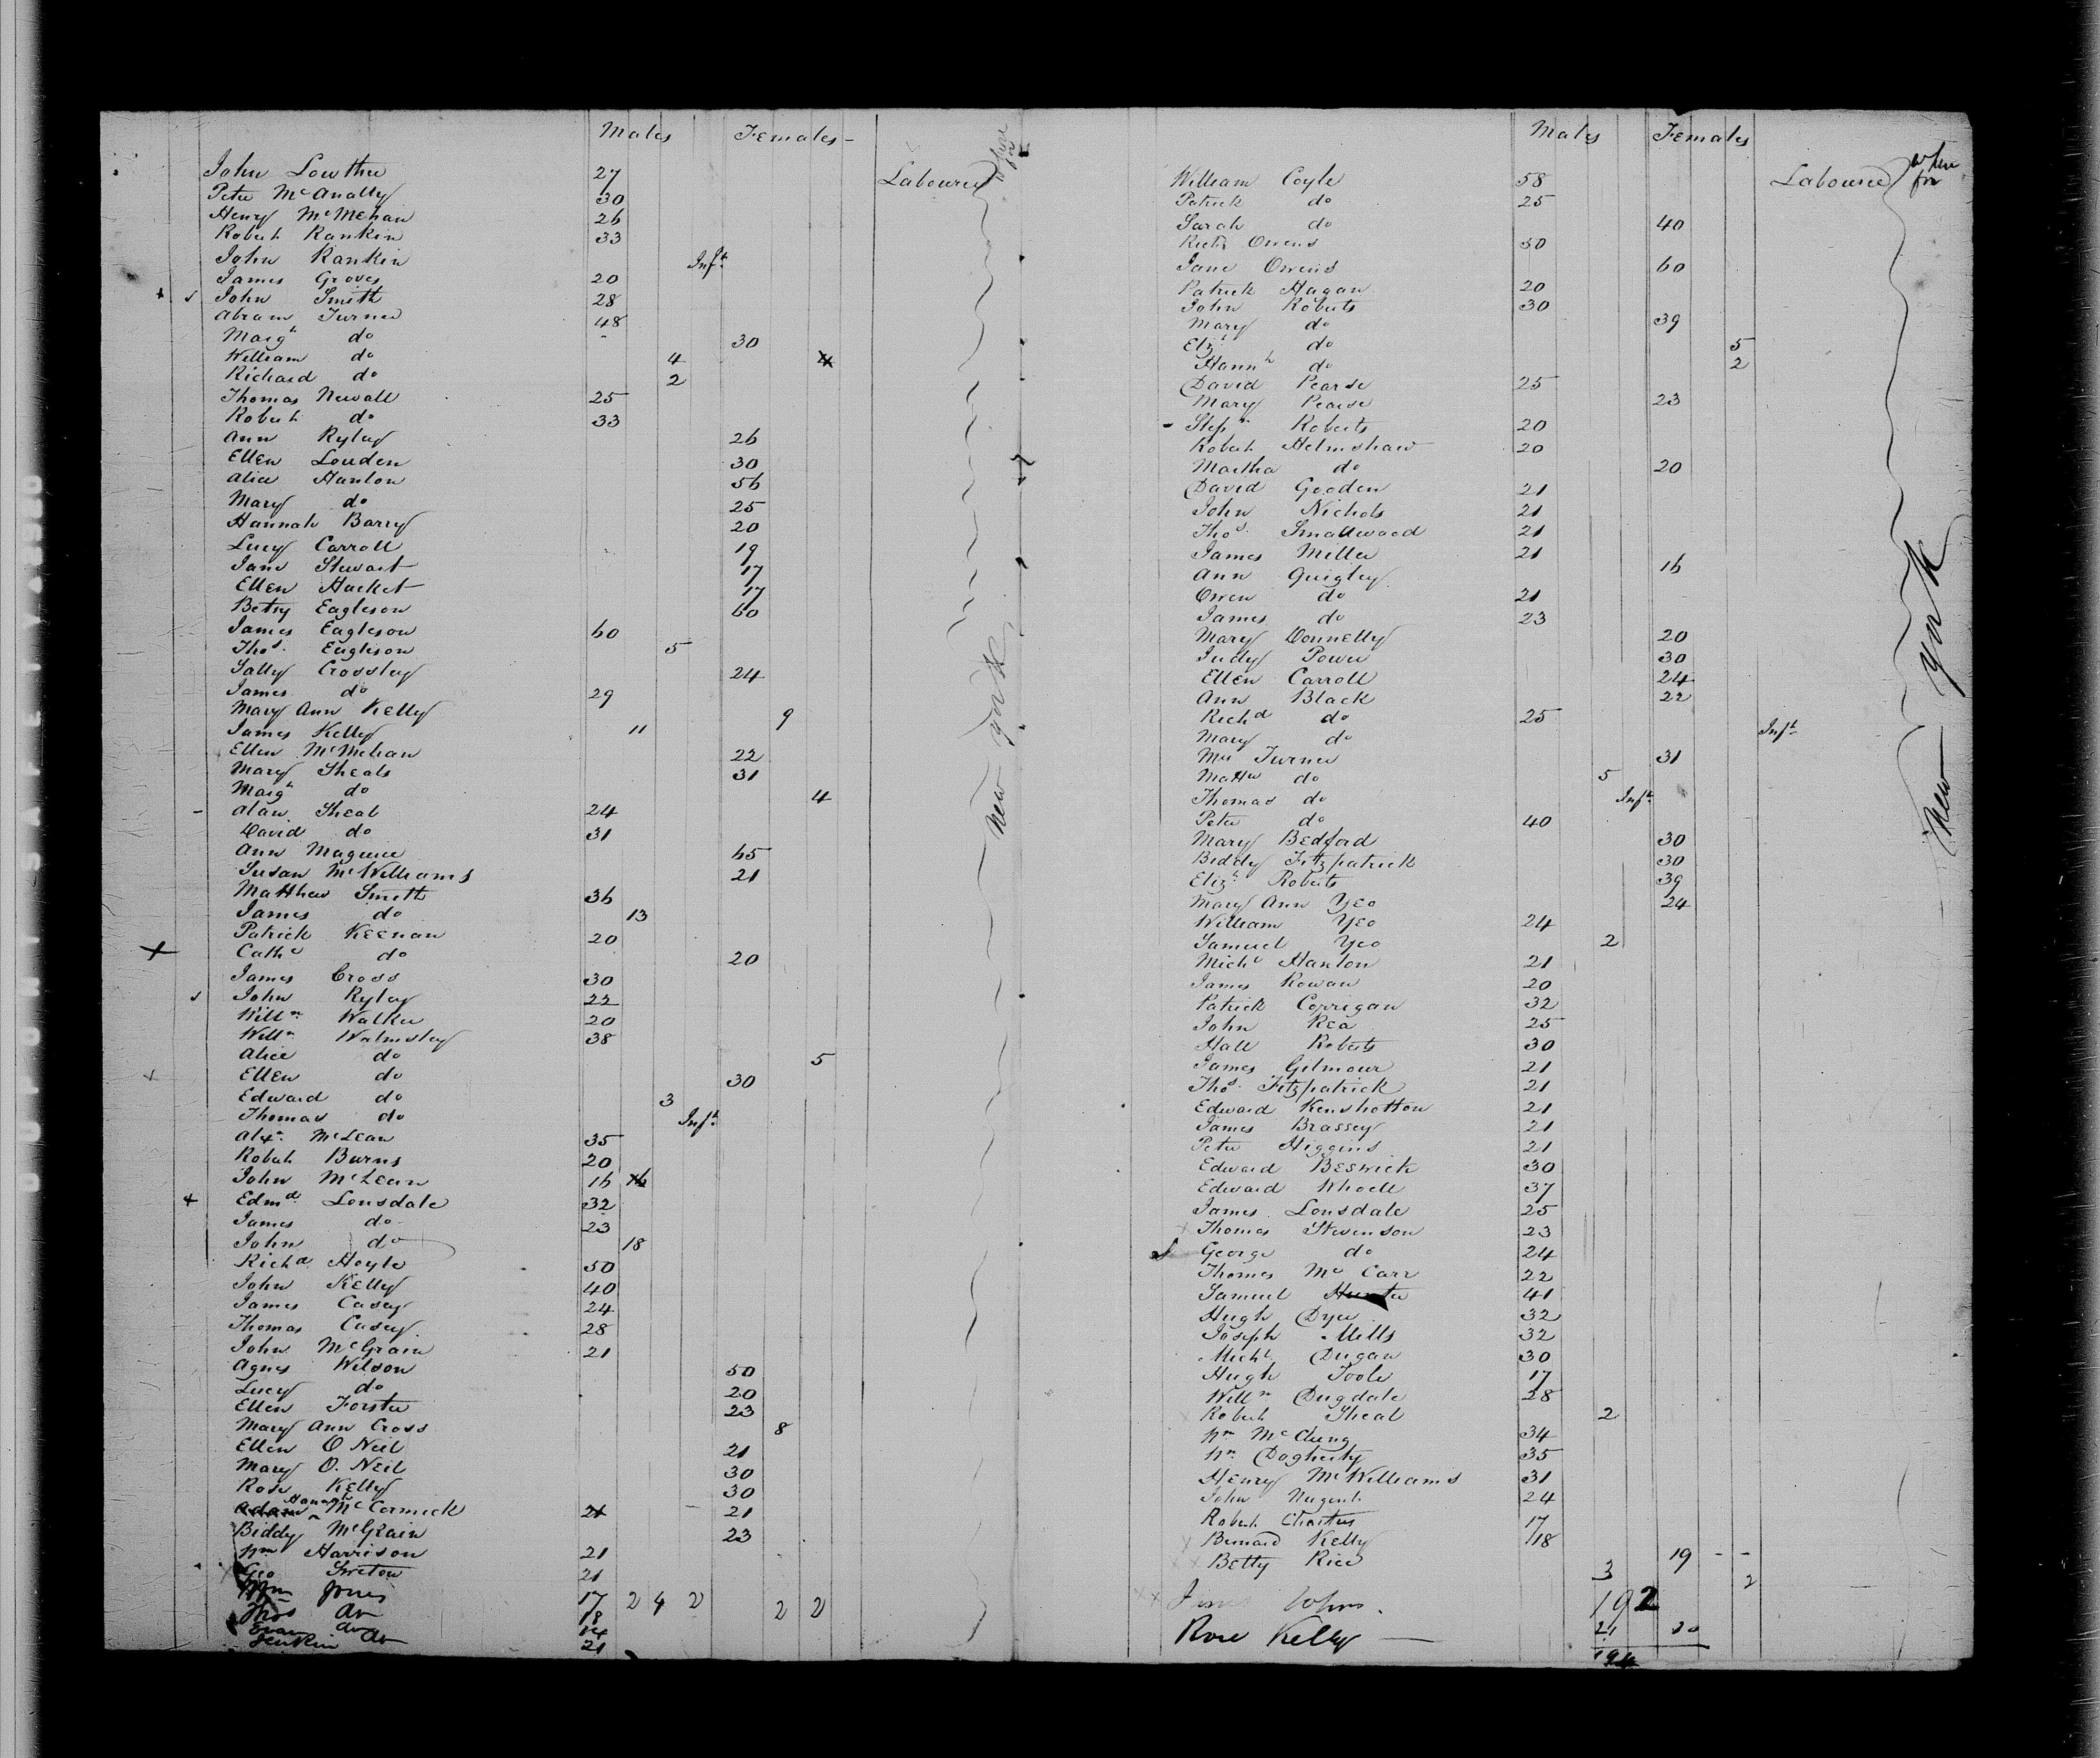 Males Females
John Lowther 27 Labourer
Peter McAnally 30
Henry McMehan 26
Robert Rankin 33
John Rankin Inft
James Groves 20
John Smith 28
Abram Turner 48
Margt do 30
William do 4
Richard do 2
Thomas Newall 25
Robert do 33
Ann Ryley 26
Ellen Louden 30
Alice Hanlon 56
Mary do 25
Hannah Barry 20
Lucy Carroll 19
Jane Stewart 17
Ellen Hacket 17
Betsy Eagleson 60
James Eagleson 60
Thos Eagleson 5
Sally Crossley 24
James do 29
Mary Ann Kelly 9
James Kelly 11
Ellen McMehan 22
Mary Sheals 31
Margt do 4
Alan Sheal 24
David do 31
Ann Maguire 65
Susan McWilliams 21
Matthew Smith 36
James do 13
Patrick Keenan 20
Cathe do 20
James Cross 30
John Ryley 22
Willm Walker 20
Willm Walmsley 38
Alice do 5
Ellen do 30
Edward do 3
Thomas do Inft
Alexr McLean 35
Robert Burns 20
John McLean 16
Edmd Lonsdale 32
James do 23
John do 18
Richd Hoyle 50
John Kelly 40
James Casey 24
Thomas Casey 28
John McGrain 21
Agnes Wilson 50
Lucy do 20
Ellen Forster 23
Mary Ann Cross 8
Ellen O Neil 21
Mary O. Neil 30
Rose Kelly 30
Hannah McCormick 21
Biddy McGrain 23
Wm Harrison 21
Geo Sweton 21
Wm Jones 17 2 4 2 2 2
Thos do 18
Evan do
Jenkin do 21
where for
New York
Males Females
William Coyle 58 Labourer where for
Patrick do 25
Sarah do 40
Richd Owens 50
Jane Owens 60
Patrick Hagan 20
John Roberts 30
Mary do 39
Eliz do 5
Hannh do 2
David Pearse 25
Mary Pearse 23
Stepn Roberts 20
Robert Helmshaw 20
Martha do 20
David Gooden 21
John Nichols 21
Thos Smallwood 21
James Miller 21
Ann Quigley 16
Owen do 21
James do 23
Mary Donnelly 20
Judy Power 30
Ellen Carroll 24
Ann Black 22
Richd do 25
Mary do Inft
Mrs Turner 31
Matthw do 5
Thomas do Inft
Peter do 40
Mary Bedford 30
Biddy Fitzpatrick 30
Elizt Roberts 39
Mary Ann Yeo 24
William Yeo 24
Samuel Yeo 2
Michl Hanlon 21
James Rowan 20
Patrick Corrigan 32
John Rea 25
Hall Roberts 30
James Gilmour 21
Thos Fitzpatrick 21
Edward Kenshotton 21
James Brassey 21
Peter Higgins 21
Edward Beswick 30
Edward Whoell 37
James Lonsdale 25
Thomas Stevenson 23
George do 24
Thomas McCarr 22
Samuel Hunter 41
Hugh Dyer 32
Joseph Mills 32
Michl Dugan 30
Hugh Toole 17
Willm Dugdale 28
Robert Sheal 2
Wm McClung 34
Wm Dogherty 35
Henry McWilliams 31
John Nugent 24
Robert Charters 17
Bernard Kelly 18
Betty Rice 19
3 2
192
Rose Kelly 21 20
194
New York